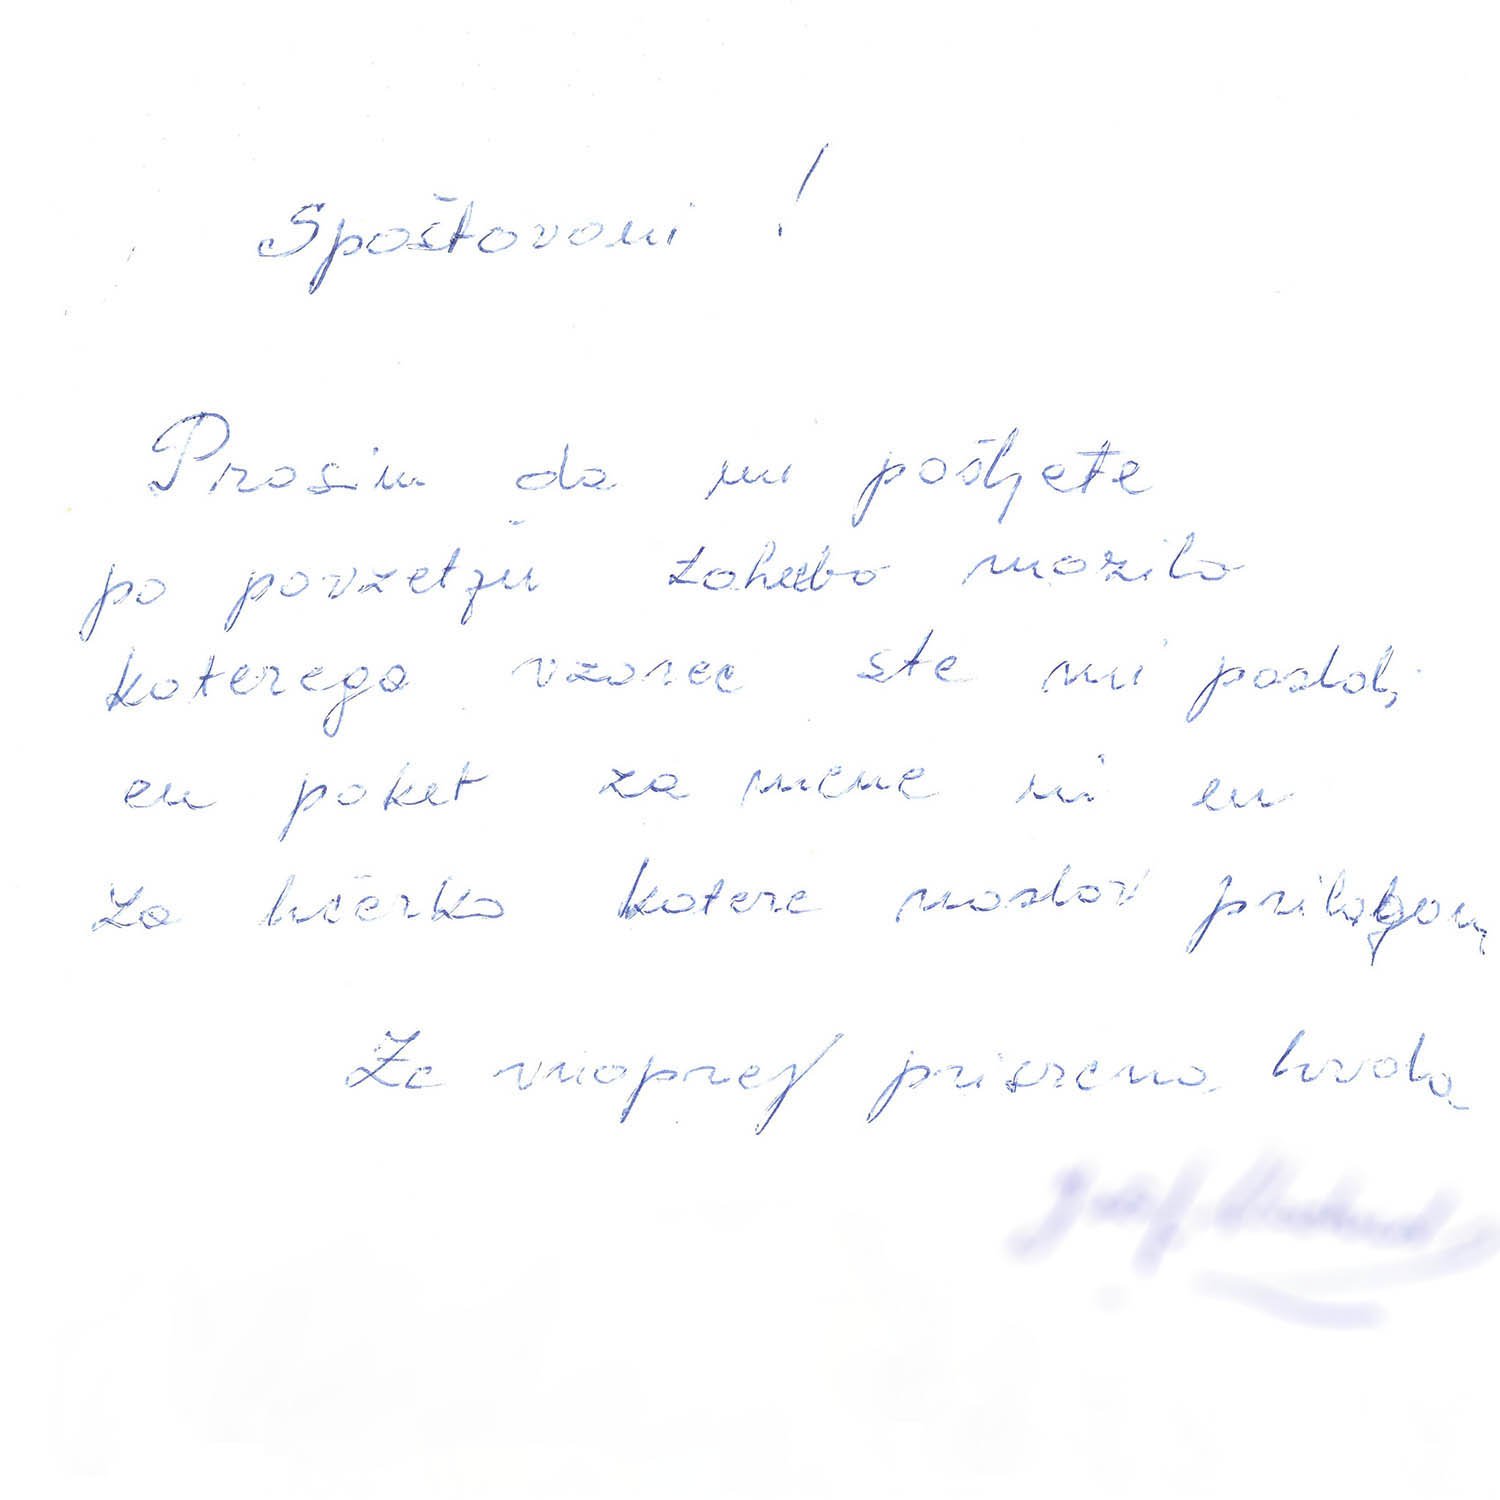 Spoštovani !
Prosim da mi pošljete
po povzetju zahebo mazilo
katerega vzorec ste mi poslali
en paket za mene in en
za hčerko katere naslov prilagam
Že vnaprej prisrčna hvala